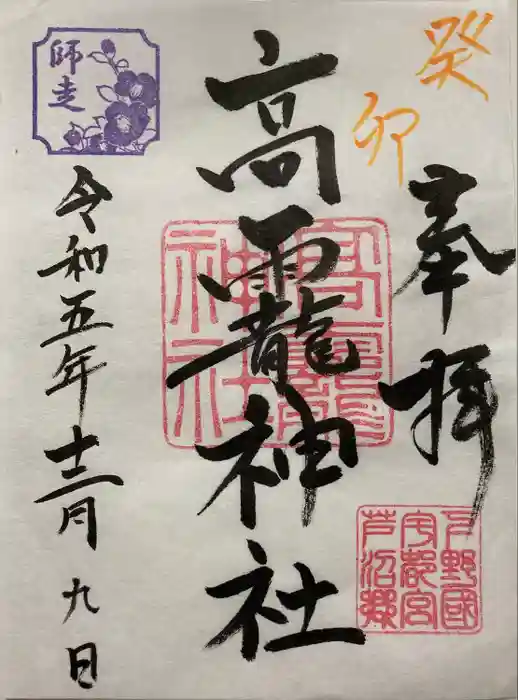 癸
卯
奉拝
高龗神社
高龗
神社
下野國
宇都宮
芦沼郷
師走
令和五年十二月九日